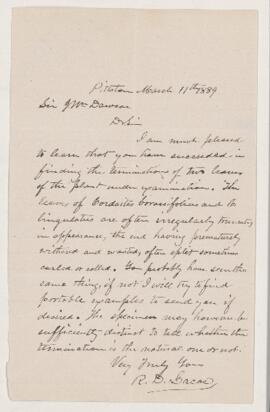 Pittston March 11th 1889
Sir J Wm Dawson
Dr Sir
I am much pleased
to learn that you have succeeded in
finding the terminations of two leaves
of the plant under examination. The
leaves of Cordaites borassifolius and C.
lingulatus are often irregularly truncate
in appearance, the end having prematurely
withered and wasted, often split sometimes
curled or rolled. You probably have seen the
same thing, if not I will try to find
portable examples to send you if
desired. The specimens may however be
sufficiently distinct to tell whether the
termination is the natural one or not.
Very Truly Yours
R. D. Lacoe